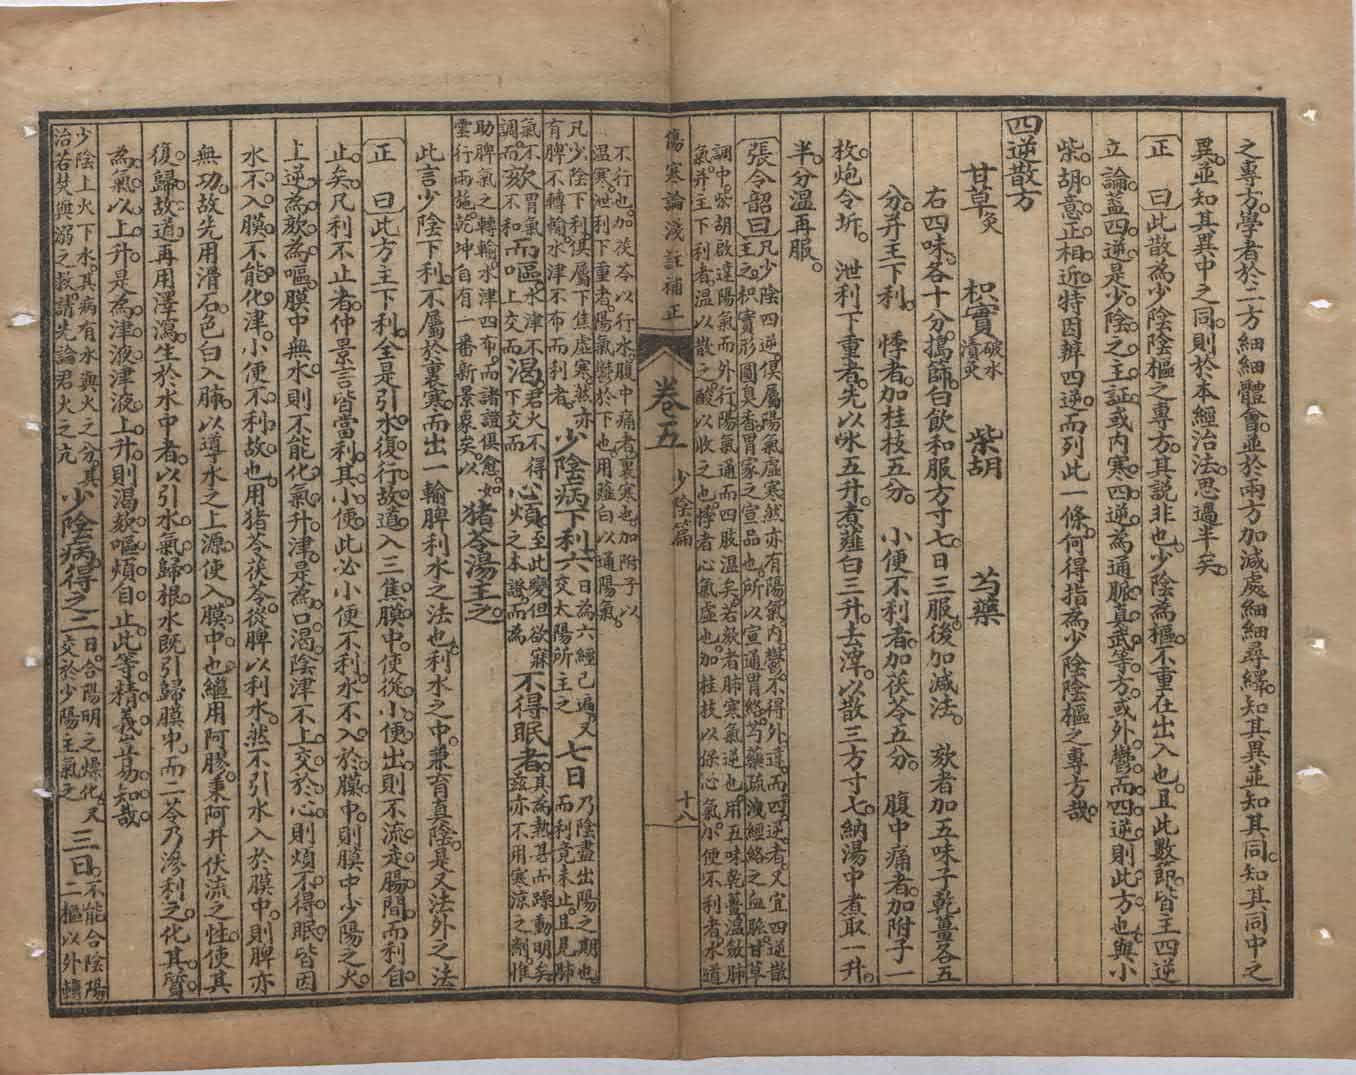 之專方。學者於二方細細體會。並於兩方加減處細細尋繹。知其異並知其同。知其同中之
異。並知其異中之同。則於本經治法。思過半矣。
正曰此散為少陰陰樞之專方。其說非也。少陰為樞。不重在出入也。且此數節。皆主四逆
立論。蓋四逆是少陰之主証。或內寒四逆。為通脈真武等方。或外鬱而四逆。則此方也。與小
柴胡意正相近。特因辨四逆。而列此一條。何得指為少陰陰樞之專方哉。
四逆散方
甘草炙 枳實破水漬炙 柴胡 芍藥
右四味。各十分。搗篩。白飲和服方寸七。日三服。後加減法。 欬者加五味子乾薑各五
分。并主下利。 悸者。加桂枝五分。 小便不利者。加茯苓五分。 腹中痛者。加附子一
枚。炮令坼。 泄利下重者。先以水五升。煮薤白三升。去滓。以散三方寸七。納湯中煮取一升
半。分溫再服。
張令韶曰凡少陰四逆。俱屬陽氣虛寒。然亦有陽氣內鬱。不得外達。而四逆者。又宜四逆散
主之。枳實形圓臭香。胃家之宣品也。所以宣通胃絡。芍藥疏洩經絡之血脈。甘草
調中。柴胡啟達陽氣而外行。陽氣通而四肢溫矣。若欬者肺寒氣逆也。用五味乾薑溫斂肺
氣。并主下利者。溫以散之。酸以收之也。悸者心氣虛也。加桂枝以保心氣。小便不利者。水道
傷寒論淺註補正 卷五 少陰篇 十八
不行也。加茯苓以行水。腹中痛者。裏寒也。加附子以
溫寒。泄利下重者。陽氣鬱於下也。用薤白以通陽氣。
凡少陰下利。俱屬下焦虛寒。然亦
有脾不轉輸。水津不布而利者。少陰病下利六日為六經已遍。又
交太陽所主之七日乃陰盡出陽之期也。
而利竟未止。且見肺
氣不調。而欬胃氣不和而嘔。水津不上交而渴。君火不得
下交而心煩。至此變但欲寐
之本證。而為不得眠者。其為熱甚而躁動明矣。
茲亦不用寒涼之劑。惟
助脾氣之轉輸。水津四布。而諸證俱愈。如
雲行雨施。乾坤自有一番新景象矣。以猪苓湯主之。
此言少陰下利。不屬於裏寒。而出一輸脾利水之法也。利水之中。兼育真陰。是又法外之法
正曰此方主下利。全是引水復行故道。入三焦膜中。使從小便出。則不流走腸間。而利自
止矣。凡利不止者。仲景言皆當利其小便。此必小便不利。水不入於膜中。則膜中少陽之火。
上逆為欬為嘔。膜中無水。則不能化氣升津。是為口渴。陰津不上交於心。則煩不得眠。皆因
水不入膜。不能化津。小便不利故也。用猪苓茯苓。從脾以利水。然不引水入於膜中。則脾亦
無功。故先用滑石。色白入肺。以導水之上源。便入膜中也。繼用阿膠。秉阿井伏流之性。使其
復歸故道。再用澤瀉。生於水中者。以引水氣歸根。水既引歸膜中。而二苓乃滲利之。化其質
為氣以上升。是為津液。津液上升。則渴欬嘔煩自止。此等精義。豈易知哉。
少陰上火下水。其病有水與火之分。其
治若焚與溺之救。請先論君火之亢。少陰病。得之二日。合陽明之燥化。又
交於少陽主氣之三日。不能合陰陽
二樞以外轉